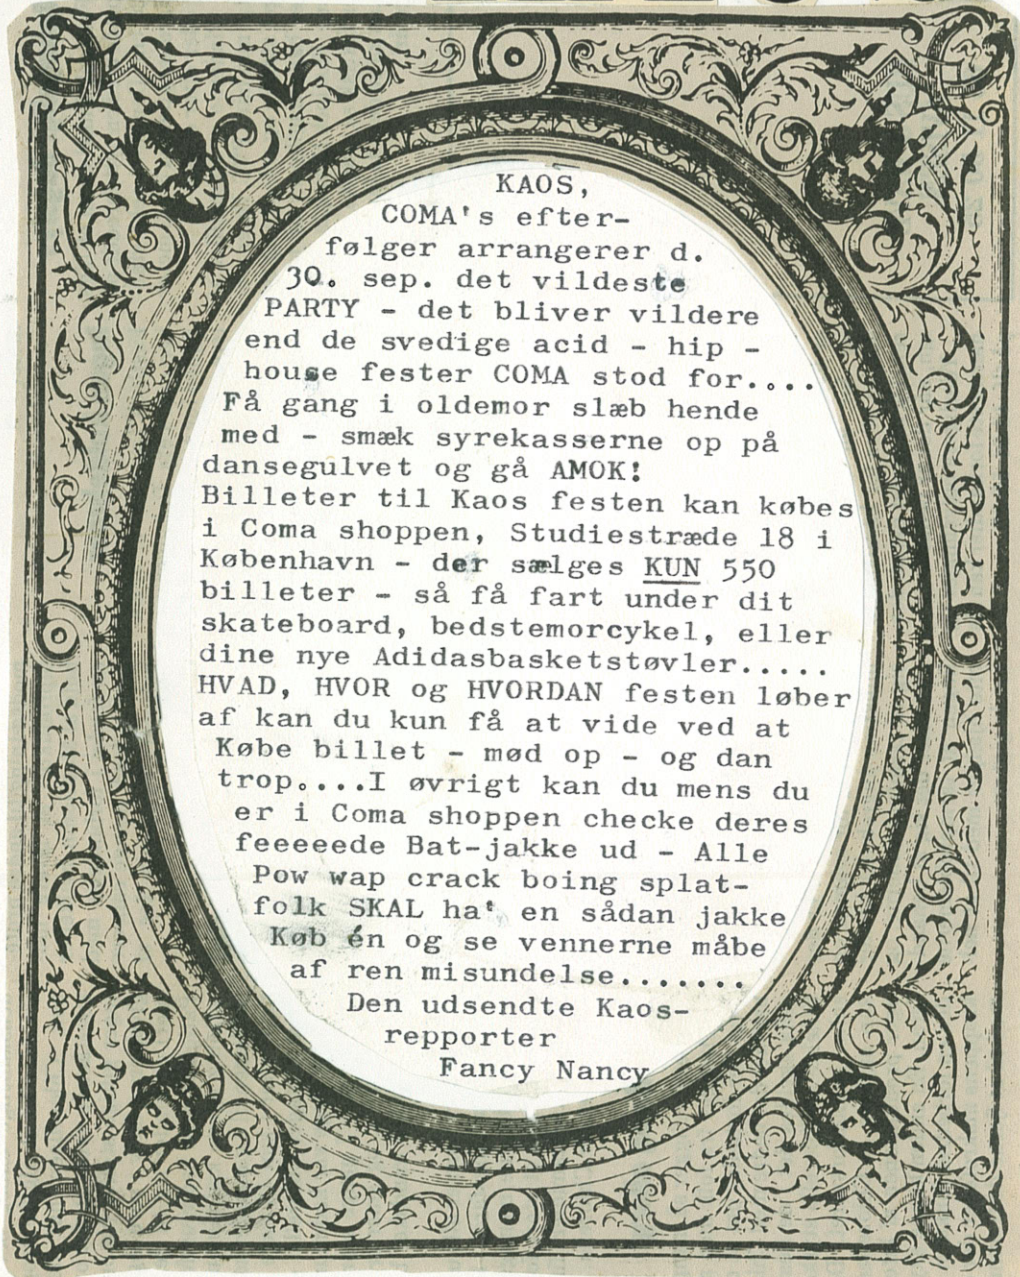 KAOS,
COMA's efter-
følger arrangerer d.
30. sep. det vildeste
PARTY - det bliver vildere
end de svedige acid - hip -
house fester COMA stod for....
Få gang i oldemor slæb hende
med - smæk syrekasserne op på
dansegulvet og gå AMOK!
Billeter til Kaos festen kan købes
i Coma shoppen, Studiestræde 18 i
København - der sælges KUN 550
billeter - så få fart under dit
skateboard, bedstemorcykel, eller
dine nye Adidasbasketstøvler.....
HVAD, HVOR og HVORDAN festen løber
af kan du kun få at vide ved at
Købe billet - mød op - og dan
trop....I øvrigt kan du mens du
er i Coma shoppen checke deres
feeeeede Bat-jakke ud - Alle
Pow wap crack boing splat-
folk SKAL ha' en sådan jakke
Køb én og se vennerne måbe
af ren misundelse.......
Den udsendte Kaos-
repporter
Fancy Nancy